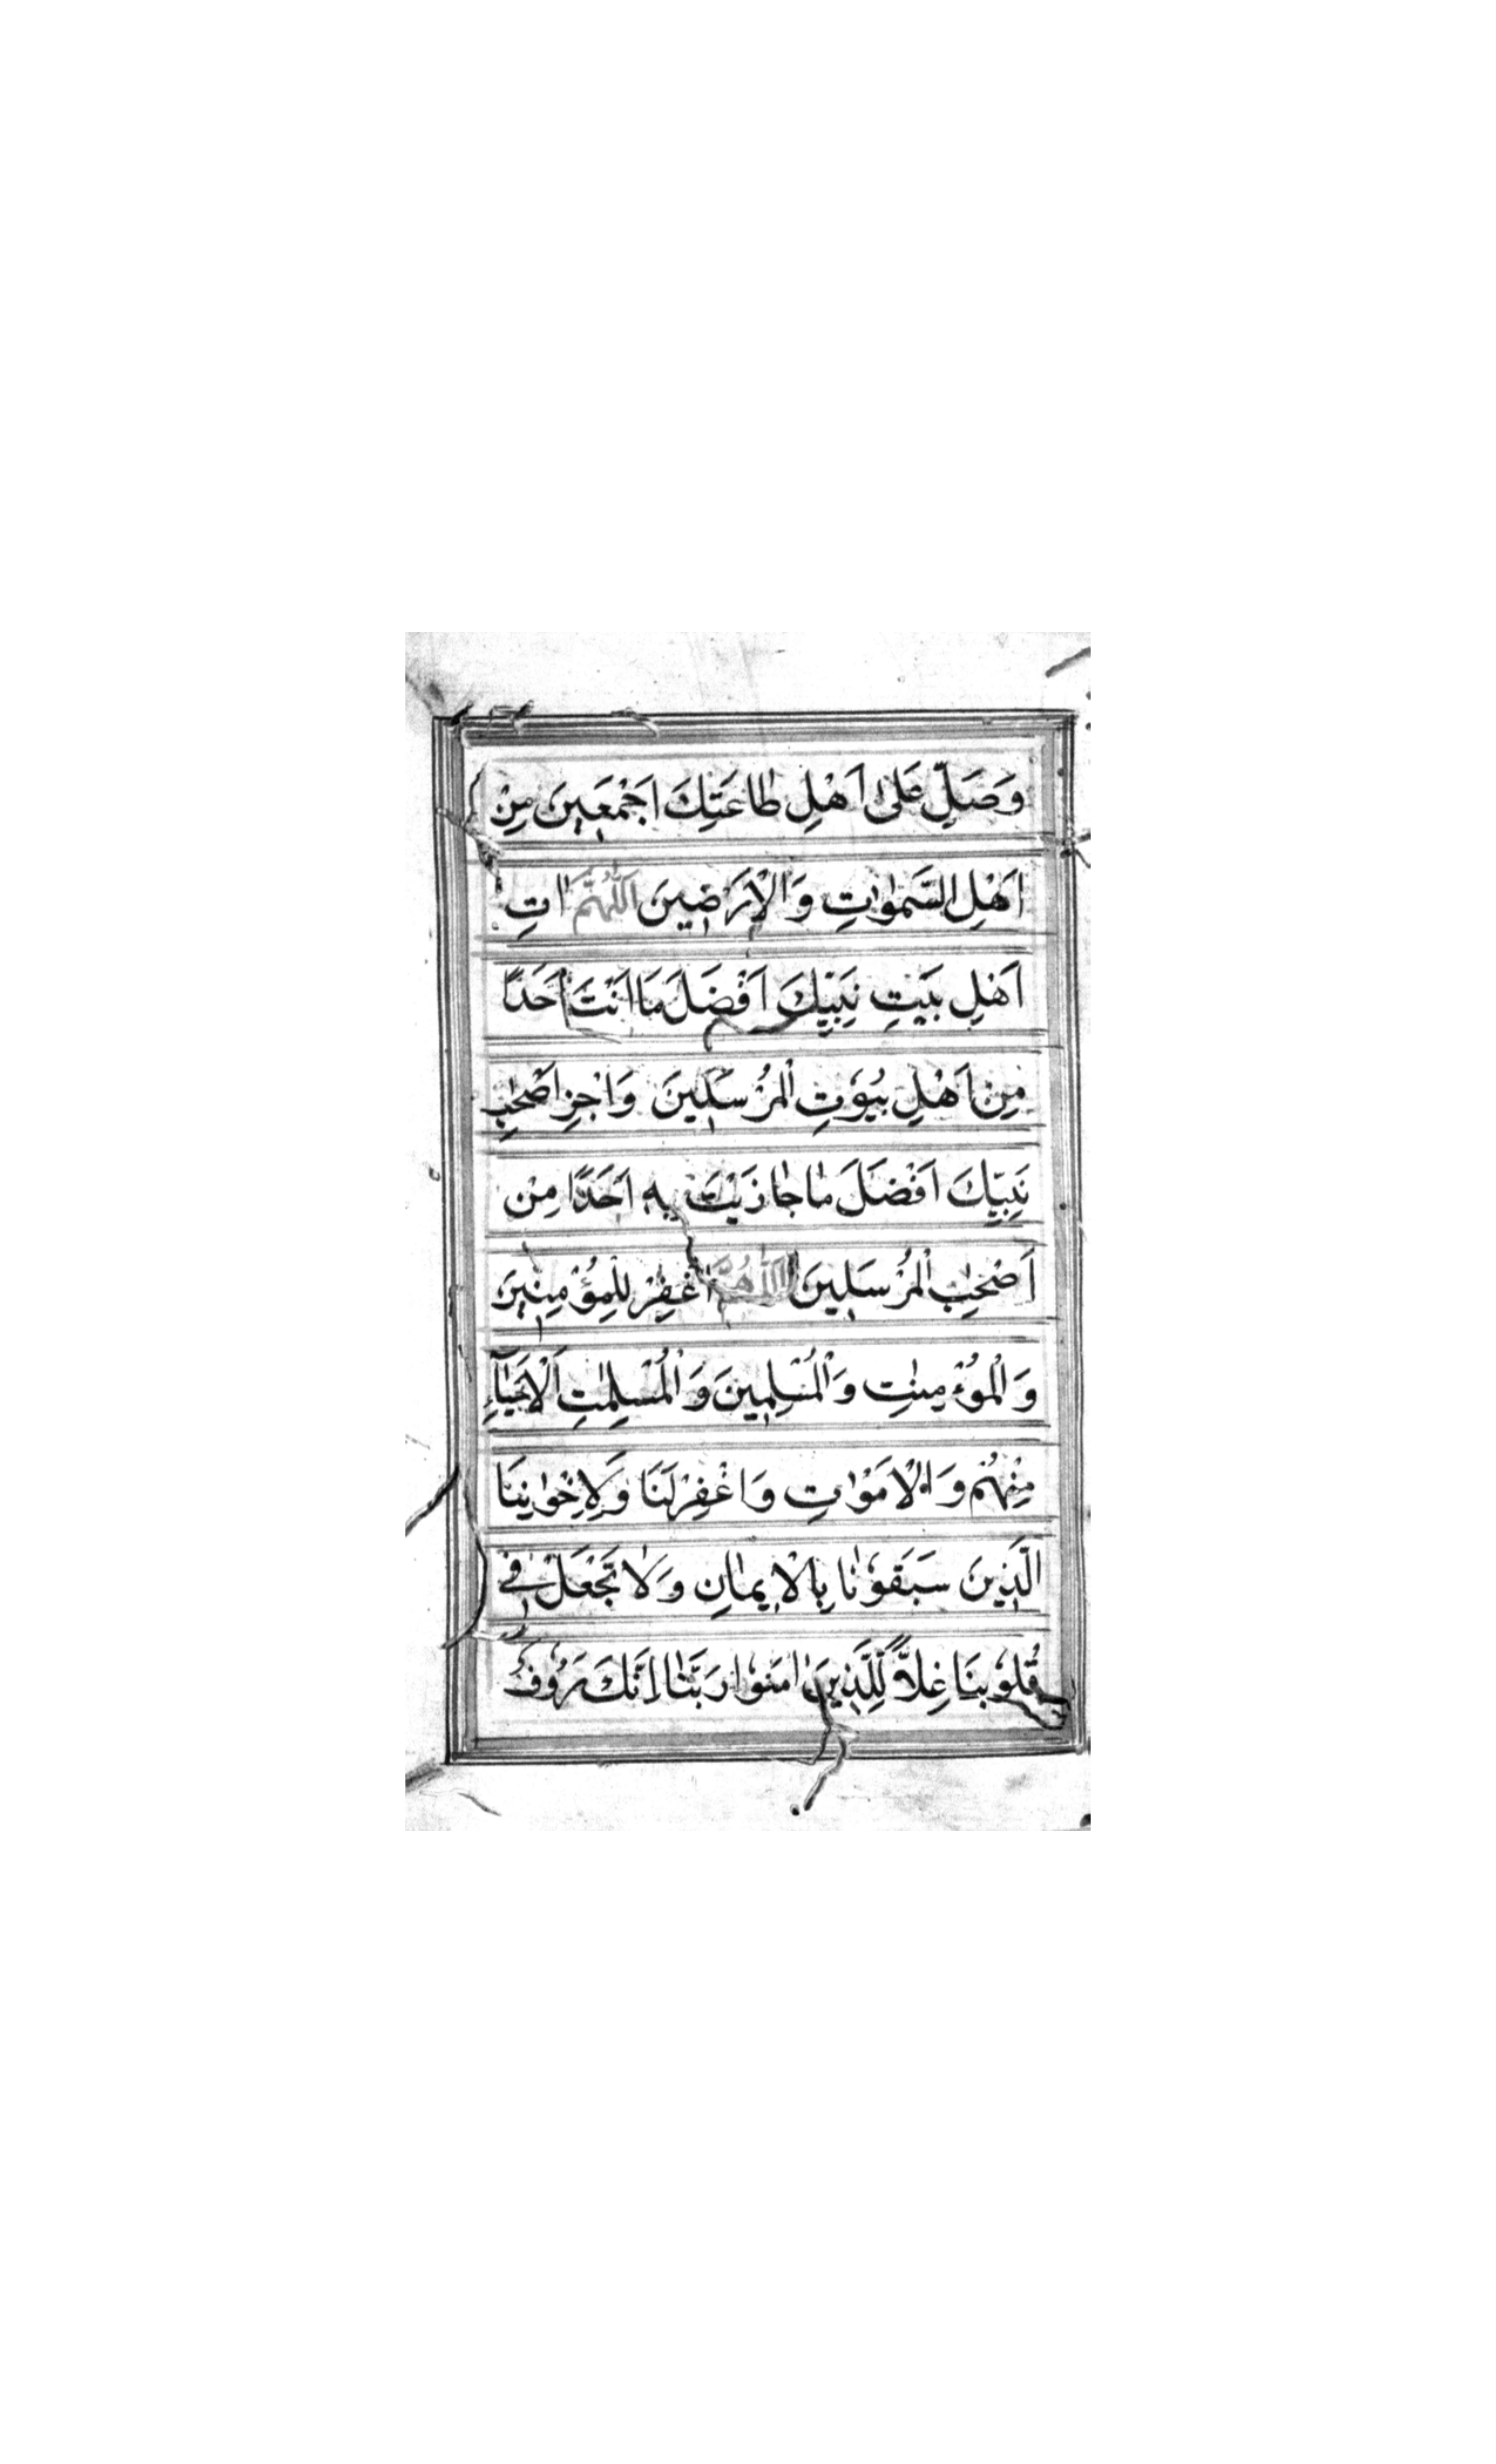 وَصَلِّ عَلٰى اَهْلِ طَاعَتِكَ اَجْمَعٖينَ مِنْ
اَهْلِ السَّمٰوَاتِ وَالْاَرَضٖينَ اَللّٰهُمَّ اٰتِ
اَهْلِ بَيْتِ نَبِيِّكَ اَفْضَلَ مَا اَنْتَ اَحَدًا
مِنْ اَهْلِ بُيُوتِ الْمُرْسَلٖينَ وَاجْزِ اَصْحٰبِ
نَبِيِّكَ اَفْضَلَ مَا جَازَيْتَ بِهٖ اَحَدًا مِنْ
اَصْحٰبِ الْمُرْسَلٖينَ اَللّٰهُمَّ اغْفِرْ لِلْمُؤْمِنٖينَ
وَالْمُؤْمِنٰتِ وَالْمُسْلِمٖينَ وَالْمُسْلِمٰتِ اَلْاَحْيَاۤءِ
مِنْهُمْ وَالْاَمْوَاتِ وَاغْفِرْ لَنَا وَلِاِخْوَانِنَا
الَّذٖينَ سَبَقُونَا بِالْاٖيمَانِ وَلَا تَجْعَلْ فٖى
قُلُوبِنَا غِلًّا لِلَّذٖينَ اٰمَنُوا رَبَّنَا اِنَّكَ رَؤُفٌ